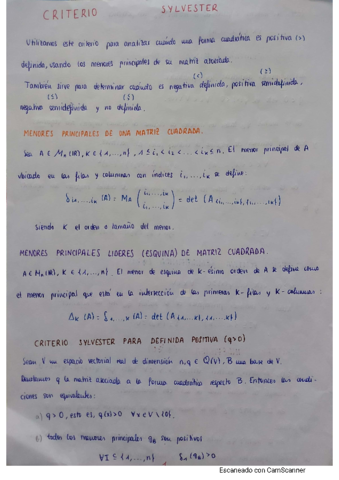 CRITERIO SYLVESTER
Utilizamos este criterio para analizar cuándo una forma cuadrática es positiva (>)
definida, usando los menores principales de su matriz asociada.
También sirve para determinar cuándo es negativa definida, positiva semidefinida,
(<) (≥)
negativa semidefinida y no definida.
(≤)
MENORES PRINCIPALES DE UNA MATRIZ CUADRADA.
Sea A ∈ Mn(ℝ), K ∈ {1,...,n}, 1 ≤ i₁ < i₂ < ... < iκ ≤ n. El menor principal de A
ubicado en las filas y columnas con índices i₁,...,iκ se define:
δ i₁,...,iκ (A) = MA (i₁,...,iκ / i₁,...,iκ) = det (A{i₁,...,iκ},{i₁,...,iκ})
Siendo K el orden o tamaño del menor.
MENORES PRINCIPALES LÍDERES (ESQUINA) DE MATRIZ CUADRADA.
A ∈ Mn(ℝ), K ∈ {1,...,n}. El menor de esquina de k-ésimo orden de A se define como
el menor principal que está en la intersección de las primeras K-filas y K-columnas:
Δκ (A) = δ1,...,κ (A) = det (A{1...κ},{1,...κ})
CRITERIO SYLVESTER PARA DEFINIDA POSITIVA (q>0)
Sean V un espacio vectorial real de dimensión n, q ∈ Q(V), B una base de V.
Denotamos q la matriz asociada a la forma cuadrática respecto B. Entonces las condi-
ciones son equivalentes:
a) q>0, esto es, q(x)>0 ∀x∈V\{0}.
b) todos los menores principales qB son positivos
∀I ⊆ {1,...,n} δI (qB) > 0
Escaneado con CamScanner